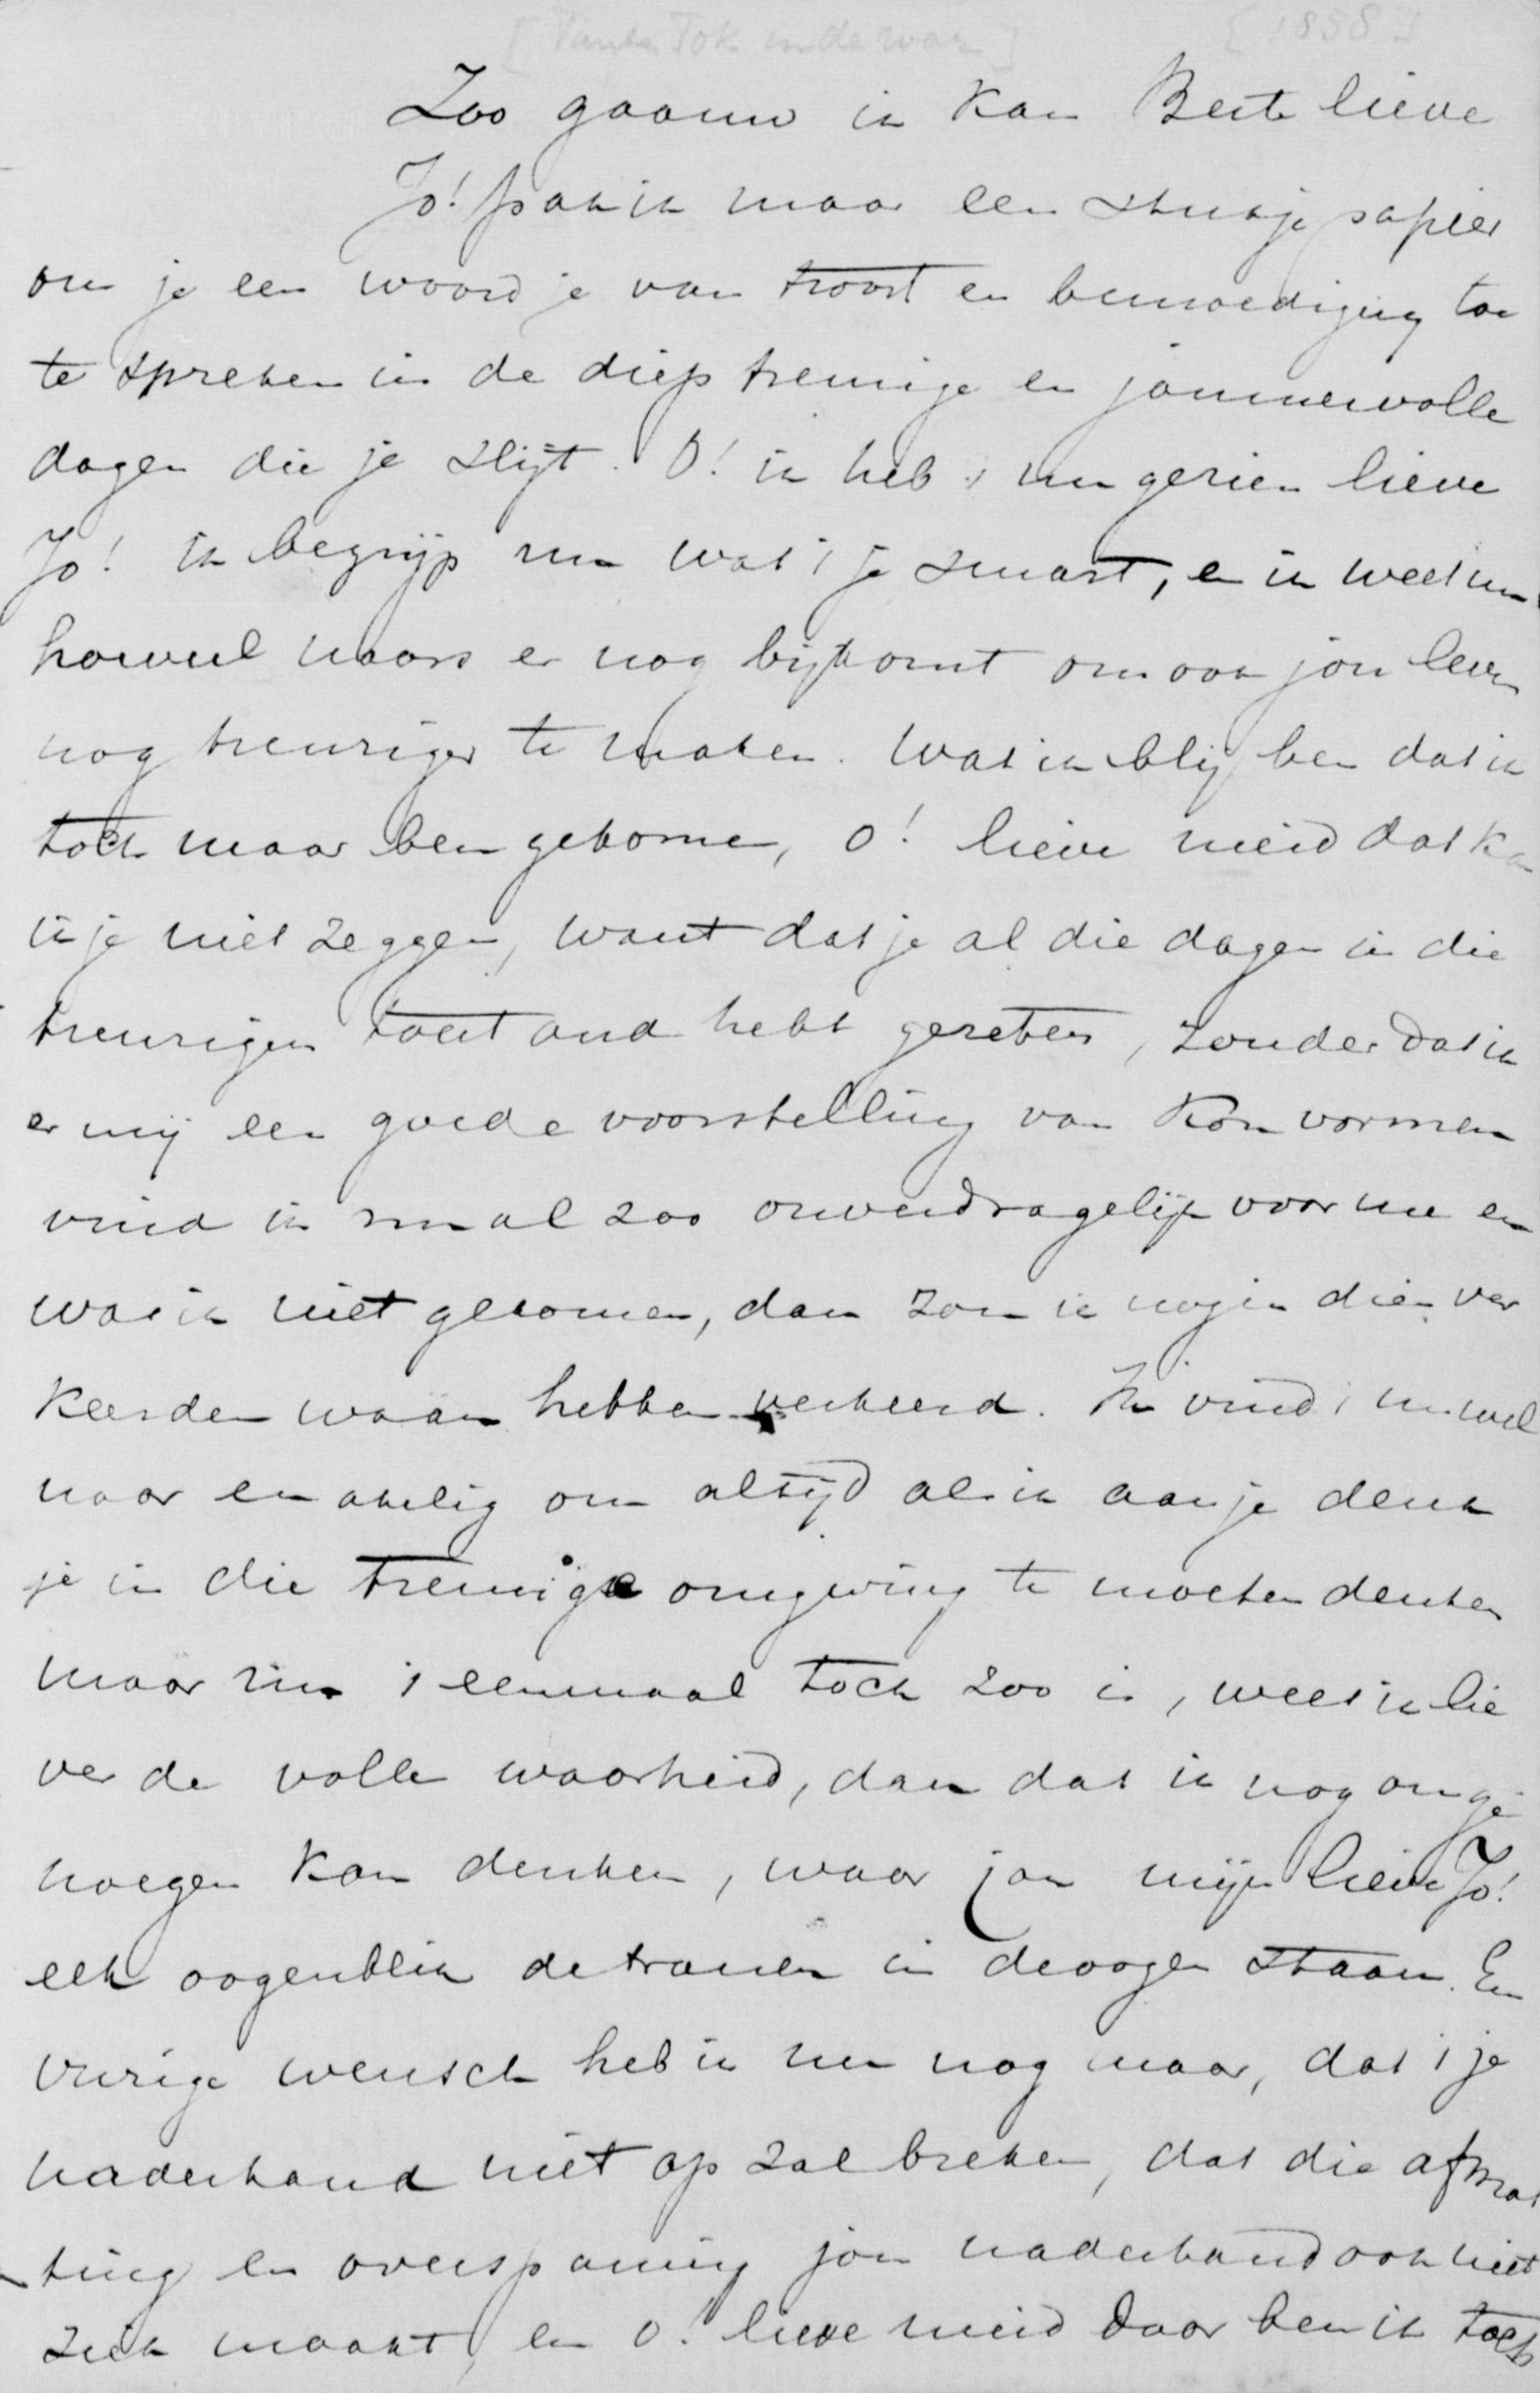 [Tante Tok in de war] [1888]
Zoo gaauw ik kan Beste lieve
Jo! pak ik maar een stukje papier
om je een woordje van troost en bemoediging toe
te spreken in de diep treurige en jammervolle
dagen die je slijt. O! ik heb 't nu gezien lieve
Jo! ik begrijp nu wat 't je smart, en ik weet nu
hoeveel naars er nog bijkomt om ook jou leven
nog treuriger te maken. Wat ik blij ben dat ik
toch maar ben gekomen, o! lieve meid dat kan
ik je niet zeggen, want dat je al die dagen in die
treurigen toestand hebt gezeten, zonder dat ik
er mij een goede voorstelling van kon vormen
vind ik nu al zoo onverdragelijk voor me en
was ik niet gekomen, dan zou ik nog in dien ver
keerden waan hebben verkeerd. Ik vind 't nu wel
naar en akelig om altijd als ik aan je denk
je in die treurige omgeving te moeten denken
maar nu 't eenmaal toch zoo is, weet ik lie
ver de volle waarheid, dan dat ik nog om ge
noegen kan denken, waar jou mijn lieve Jo!
elk oogenblik de tranen in de oogen staan. En
vurige wensch heb ik nu nog maar, dat 't je
naderhand niet op zal breken, dat die afmat
ting en overspaning jou naderhand ook niet
ziek maakt, en o! lieve meid daar ben ik toch